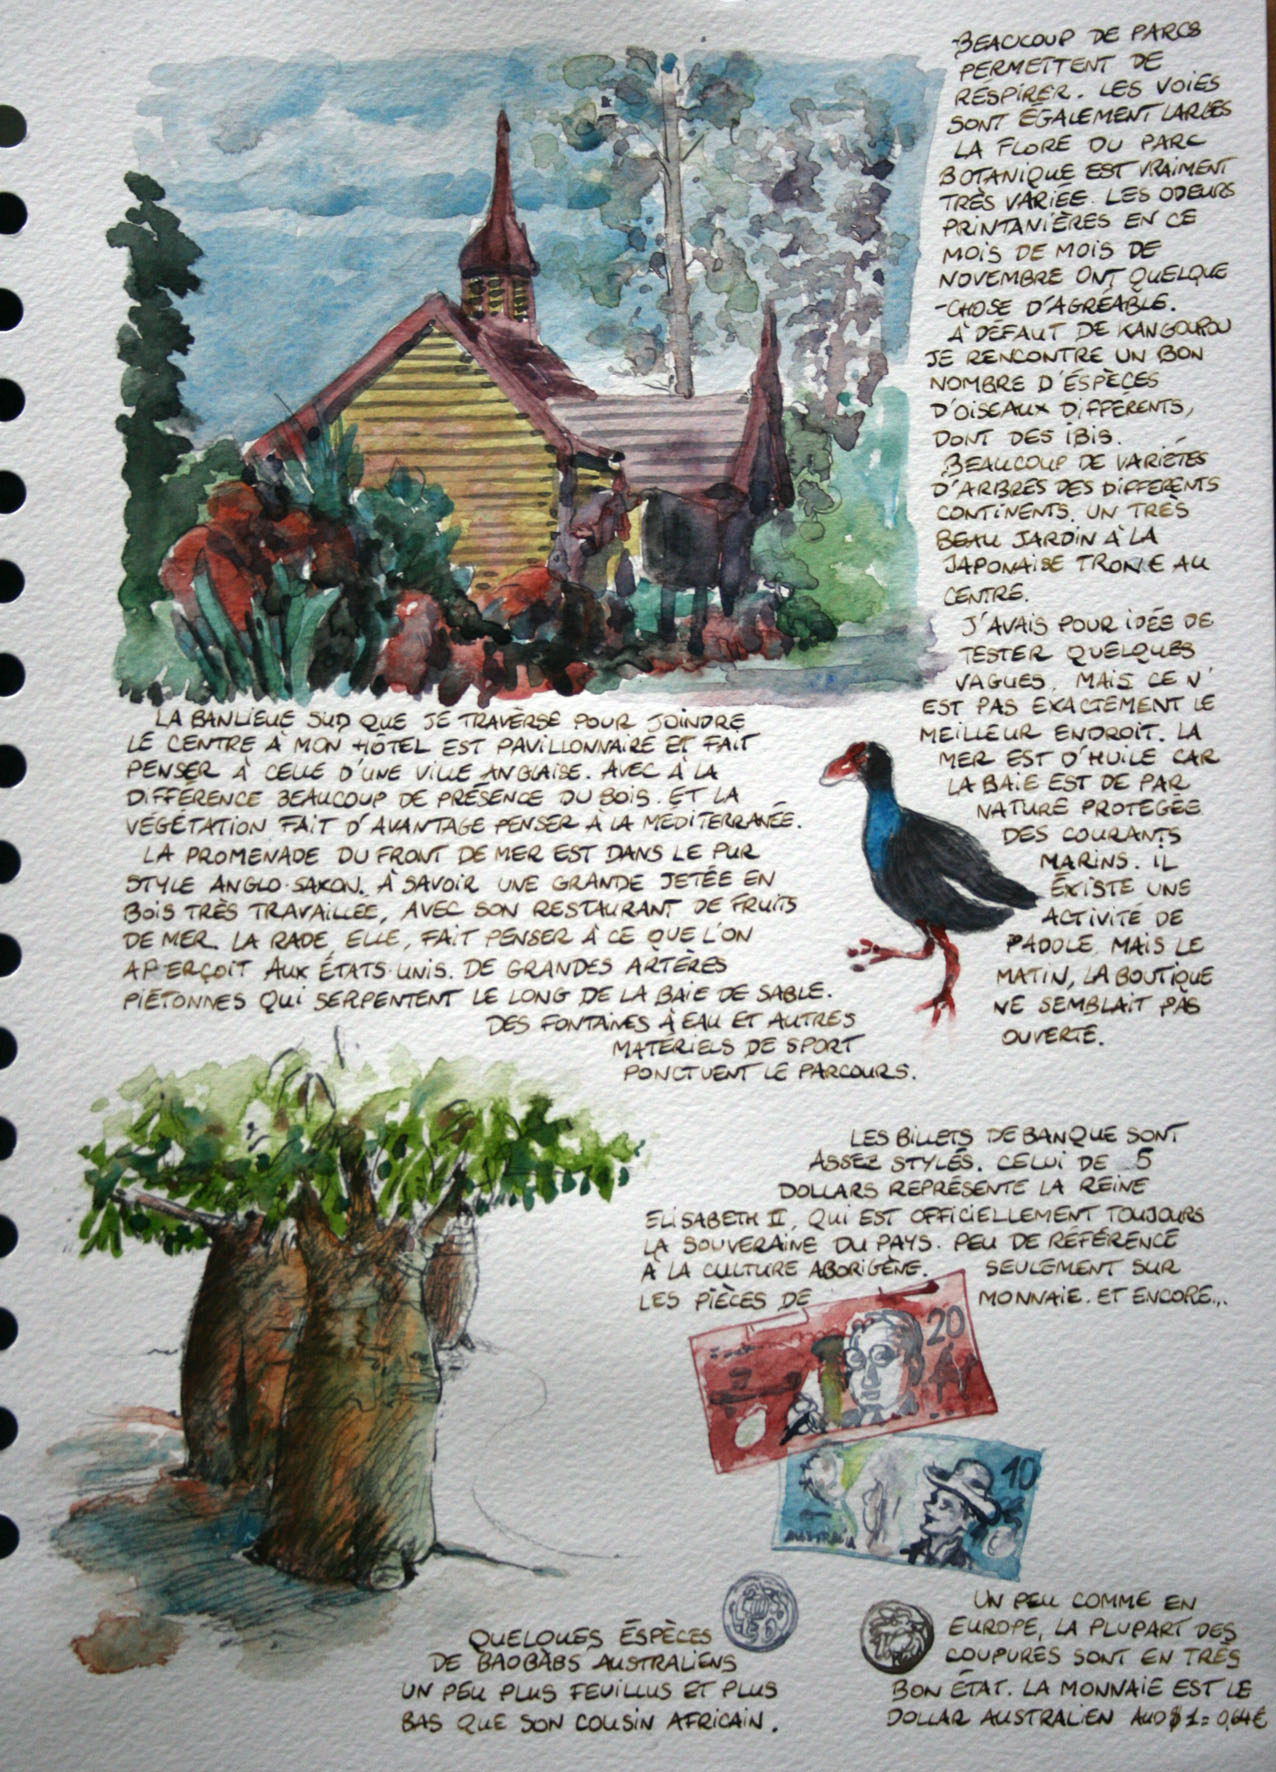 BEAUCOUP DE PARCS
PERMETTENT DE
RESPIRER. LES VOIES
SONT ÉGALEMENT LARGES
LA FLORE DU PARC
BOTANIQUE EST VRAIMENT
TRÈS VARIÉE. LES ODEURS
PRINTANIÈRES EN CE
MOIS DE MOIS DE
NOVEMBRE ONT QUELQUE
-CHOSE D'AGRÉABLE.
À DÉFAUT DE KANGOUROU
JE RENCONTRE UN BON
NOMBRE D'ÉSPÈCES
D'OISEAUX DIFFÉRENTS,
DONT DES IBIS.
BEAUCOUP DE VARIÉTÉS
D'ARBRES DES DIFFÉRENTS
CONTINENTS. UN TRÈS
BEAU JARDIN À LA
JAPONAISE TRONE AU
CENTRE.
J'AVAIS POUR IDÉE DE
TESTER QUELQUES
VAGUES. MAIS CE N'
EST PAS EXACTEMENT LE
MEILLEUR ENDROIT. LA
MER EST D'HUILE CAR
LA BAIE EST DE PAR
NATURE PROTEGÉE
DES COURANTS
MARINS. IL
ÉXISTE UNE
ACTIVITÉ DE
PADDLE. MAIS LE
MATIN, LA BOUTIQUE
NE SEMBLAIT PAS
OUVERTE.
LA BANLIEUE SUD QUE JE TRAVERSE POUR JOINDRE
LE CENTRE À MON HÔTEL EST PAVILLONNAIRE ET FAIT
PENSER À CELLE D'UNE VILLE ANGLAISE. AVEC À LA
DIFFÉRENCE BEAUCOUP DE PRÉSENCE DU BOIS. ET LA
VÉGÉTATION FAIT D'AVANTAGE PENSER À LA MÉDITERRANÉE.
LA PROMENADE DU FRONT DE MER EST DANS LE PUR
STYLE ANGLO-SAXON. À SAVOIR UNE GRANDE JETÉE EN
BOIS TRÈS TRAVAILLÉE, AVEC SON RESTAURANT DE FRUITS
DE MER. LA RADE, ELLE, FAIT PENSER À CE QUE L'ON
APERÇOIT AUX ÉTATS-UNIS. DE GRANDES ARTÈRES
PIÉTONNES QUI SERPENTENT LE LONG DE LA BAIE DE SABLE.
DES FONTAINES À EAU ET AUTRES
MATÉRIELS DE SPORT
PONCTUENT LE PARCOURS.
LES BILLETS DE BANQUE SONT
ASSEZ STYLÉS. CELUI DE 5
DOLLARS REPRÉSENTE LA REINE
ELISABETH II, QUI EST OFFICIELLEMENT TOUJOURS
LA SOUVERAINE DU PAYS. PEU DE RÉFÉRENCE
À LA CULTURE ABORIGÈNE. SEULEMENT SUR
LES PIÈCES DE MONNAIE. ET ENCORE...
20
10
AUSTRALIA
QUELQUES ÉSPÈCES
DE BAOBABS AUSTRALIENS
UN PEU PLUS FEUILLUS ET PLUS
BAS QUE SON COUSIN AFRICAIN.
UN PEU COMME EN
EUROPE, LA PLUPART DES
COUPURES SONT EN TRÈS
BON ÉTAT. LA MONNAIE EST LE
DOLLAR AUSTRALIEN AUD$1=0,64€